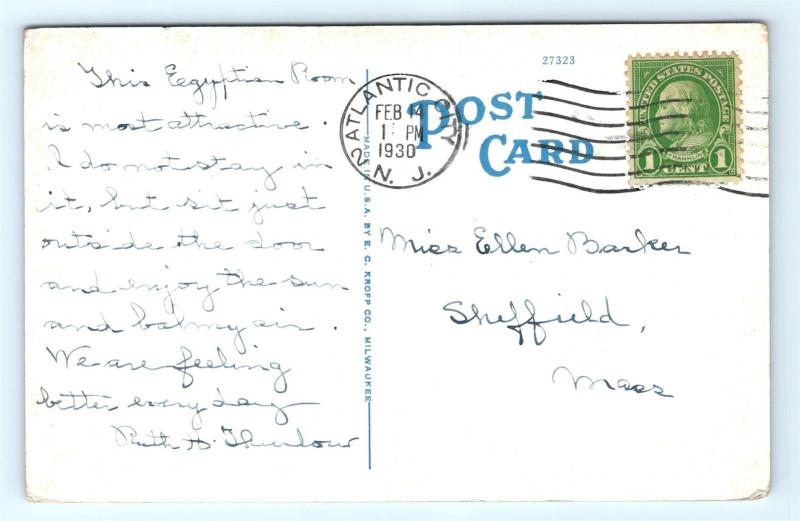 This Egyptian Room
is most attractive.
I do not stay in
it, but sit just
outside the door
and enjoy the sun
and balmy air.
We are feeling
better every day
Ruth H. Thurlow
MADE IN U.S.A. BY E. C. KROPP CO., MILWAUKEE
27323
POST
CARD
ATLANTIC CITY
FEB 14
1 PM
1930
2 N. J.
UNITED STATES POSTAGE
FRANKLIN
1 CENT 1
Miss Ellen Barker
Sheffield,
Mass